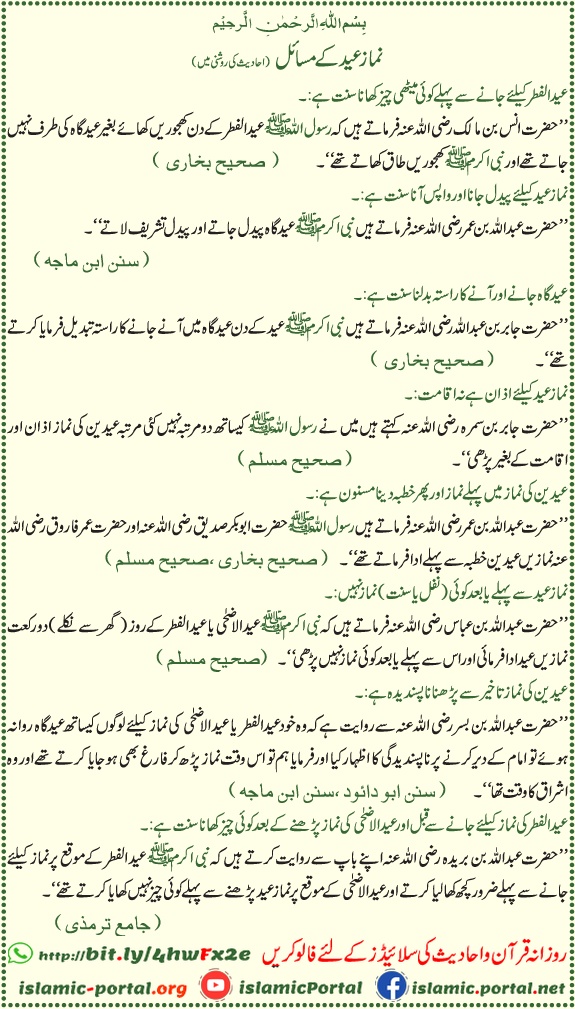 بِسْمِ اللّٰهِ الرَّحْمٰنِ الرَّحِيْمِ
نمازِ عید کے مسائل (احادیث کی روشنی میں)
عیدالفطر کیلئے جانے سے پہلے کوئی میٹھی چیز کھانا سنت ہے:۔
’’حضرت انس بن مالک رضی اللہ عنہ فرماتے ہیں کہ رسول اللہ ﷺ عیدالفطر کے دن کھجوریں کھائے بغیر عیدگاہ کی طرف نہیں
جاتے تھے اور نبی اکرم ﷺ کھجوریں طاق کھاتے تھے‘‘۔ ( صحیح بخاری )
نمازِ عید کیلئے پیدل جانا اور واپس آنا سنت ہے:۔
’’حضرت عبداللہ بن عمر رضی اللہ عنہ فرماتے ہیں نبی اکرم ﷺ عیدگاہ پیدل جاتے اور پیدل تشریف لاتے‘‘۔
(سنن ابن ماجه )
عیدگاہ جانے اور آنے کا راستہ بدلنا سنت ہے:۔
’’حضرت جابر بن عبداللہ رضی اللہ عنہ فرماتے ہیں نبی اکرم ﷺ عید کے دن عیدگاہ میں آنے جانے کا راستہ تبدیل فرمایا کرتے
تھے‘‘۔ ( صحیح بخاری )
نمازِ عید کیلئے اذان ہے نہ اقامت:۔
’’حضرت جابر بن سمرہ رضی اللہ عنہ کہتے ہیں میں نے رسول اللہ ﷺ کیساتھ دو مرتبہ نہیں کئی مرتبہ عیدین کی نماز اذان اور
اقامت کے بغیر پڑھی‘‘۔ (صحیح مسلم )
عیدین کی نماز میں پہلے نماز اور پھر خطبہ دینا مسنون ہے:۔
’’حضرت عبداللہ بن عمر رضی اللہ عنہ فرماتے ہیں رسول اللہ ﷺ حضرت ابوبکر صدیق رضی اللہ عنہ اور حضرت عمر فاروق رضی اللہ
عنہ نمازیں عیدین خطبہ سے پہلے ادا فرماتے تھے‘‘۔ ( صحیح بخاری ،صحیح مسلم )
نمازِ عید سے پہلے یا بعد کوئی (نفل یا سنت) نماز نہیں:۔
’’حضرت عبداللہ بن عباس رضی اللہ عنہ فرماتے ہیں کہ نبی اکرم ﷺ عیدالاضحیٰ یا عیدالفطر کے روز (گھر سے نکلے) دو رکعت
نمازیں عید ادا فرمائی اور اس سے پہلے یا بعد کوئی نماز نہیں پڑھی‘‘۔ (صحیح مسلم )
عیدین کی نماز تاخیر سے پڑھنا ناپسندیدہ ہے:۔
’’حضرت عبداللہ بن بسر رضی اللہ عنہ سے روایت ہے کہ وہ خود عیدالفطر یا عیدالاضحٰی کی نماز کیلئے لوگوں کیساتھ عیدگاہ روانہ
ہوئے تو امام کے دیر کرنے پر ناپسندیدگی کا اظہار کیا اور فرمایا ہم تو اس وقت نماز پڑھ کر فارغ بھی ہو جایا کرتے تھے اور وہ
اشراق کا وقت تھا‘‘۔ ( سنن ابو دائود ،سنن ابن ماجه )
عیدالفطر کی نماز کیلئے جانے سے قبل اور عیدالاضحٰی کی نماز پڑھنے کے بعد کوئی چیز کھانا سنت ہے:۔
’’حضرت عبداللہ بن بریدہ رضی اللہ عنہ اپنے باپ سے روایت کرتے ہیں کہ نبی اکرم ﷺ عیدالفطر کے موقع پر نماز کیلئے
جانے سے پہلے ضرور کچھ کھا لیا کرتے اور عیدالاضحٰی کے موقع پر نمازِ عید پڑھنے سے پہلے کوئی چیز نہیں کھایا کرتے تھے‘‘۔
(جامع ترمذی )
روزانہ قرآن و احادیث کی سلائیڈز کے لئے فالو کریں http://bit.ly/4hwFx2e
islamic-portal.org islamicPortal islamic.portal.net